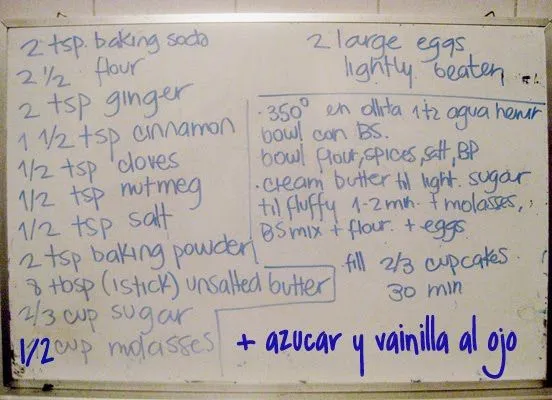 2 tsp baking soda
2 1/2 flour
2 tsp ginger
1 1/2 tsp cinnamon
1/2 tsp cloves
1/2 tsp nutmeg
1/2 tsp salt
2 tsp baking powder
8 tbsp (1 stick) unsalted butter
2/3 cup sugar
1/2 cup molasses
2 large eggs
lightly beaten
· 350° en ollita 1+2 agua hervir
bowl con BS.
bowl flour, spices, salt, BP
· cream butter til light. sugar
til fluffy 1-2 min. + molasses,
BS mix + flour. + eggs
fill 2/3 cupcakes
30 min
+ azucar y vainilla al ojo